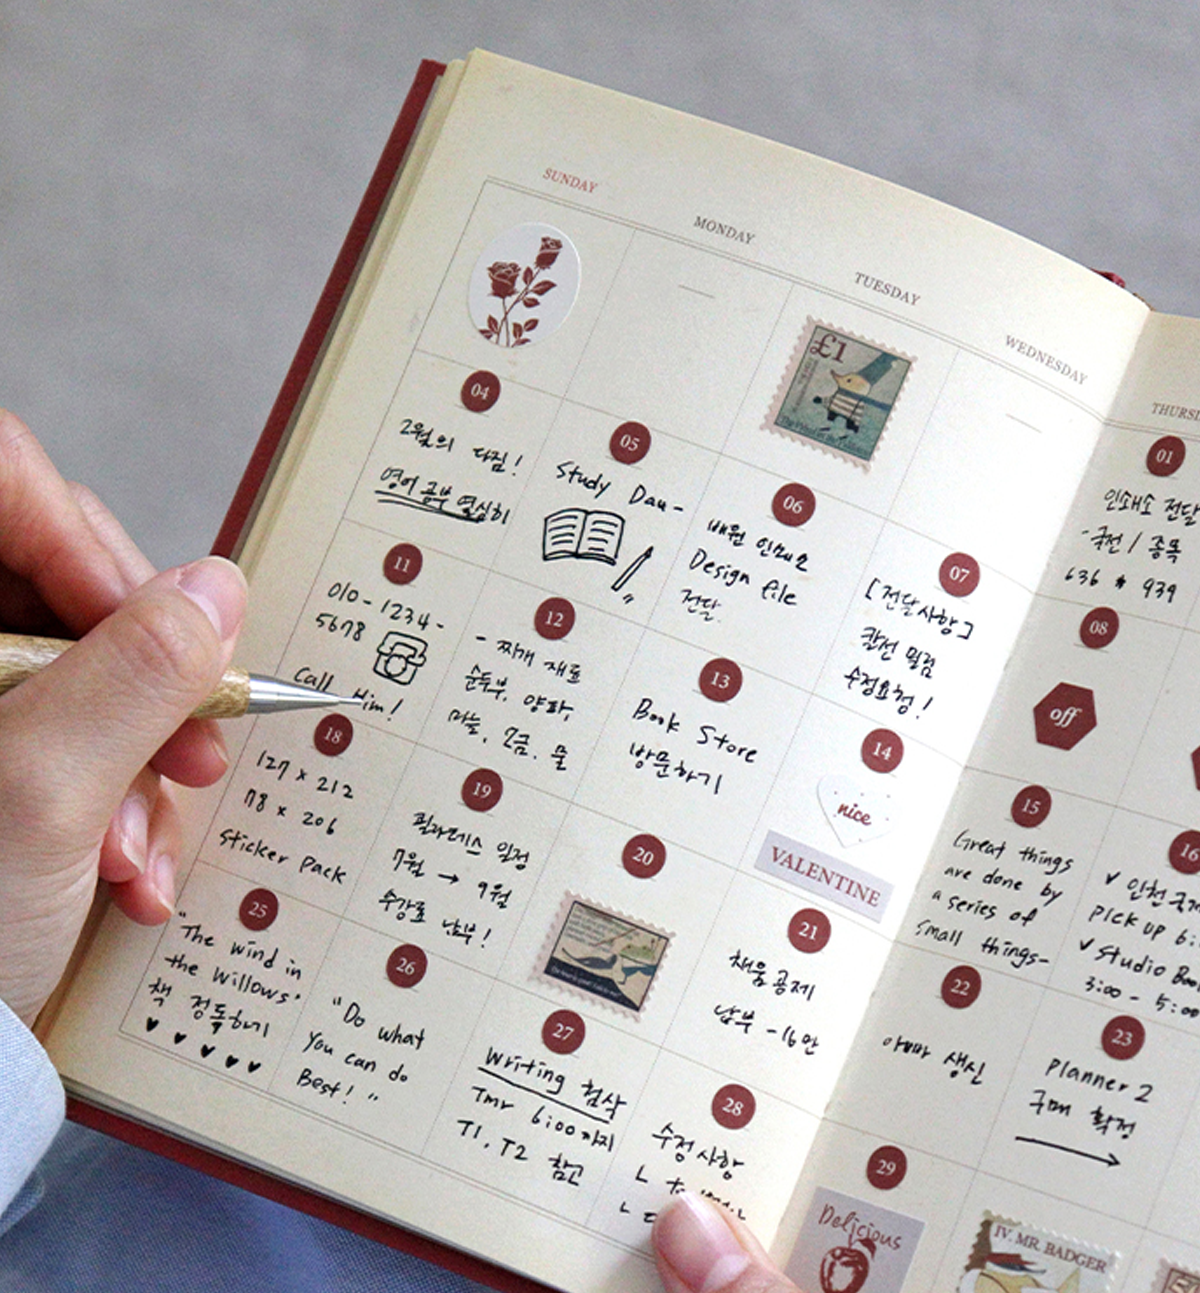 SUNDAY
MONDAY
TUESDAY
WEDNESDAY
£1
01
인쇄소 전달
636 * 939
04
2월의 다짐!
영어 공부 열심히
05
Study Day -
06
배원 인쇄소
Design file
전달.
07
[전달사항]
칼선 필름
수정요청!
08
off
11
010-1234-
5678
Call Him!
12
- 찌개 재료
순두부, 양파,
마늘, 소금, 물
13
Book Store
방문하기
14
nice
VALENTINE
15
Great things
are done by
a series of
small things-
16
✓ 인천국제
PICK UP 6:
✓ Studio
3:00 - 5:00
18
127 x 212
78 x 206
Sticker Pack
19
필라테스 일정
7월 → 9월
수강료 납부!
20
21
채움공제
납부 -16만
22
아빠 생신
23
Planner 2
구매 확정
25
"The wind in
the Willows"
책 정독하기
26
"Do what
You can do
Best!"
27
Writing 첨삭
Tmr 6:00까지
T1, T2 참고
28
수정사항
29
Delicious
IV. MR. BADGER